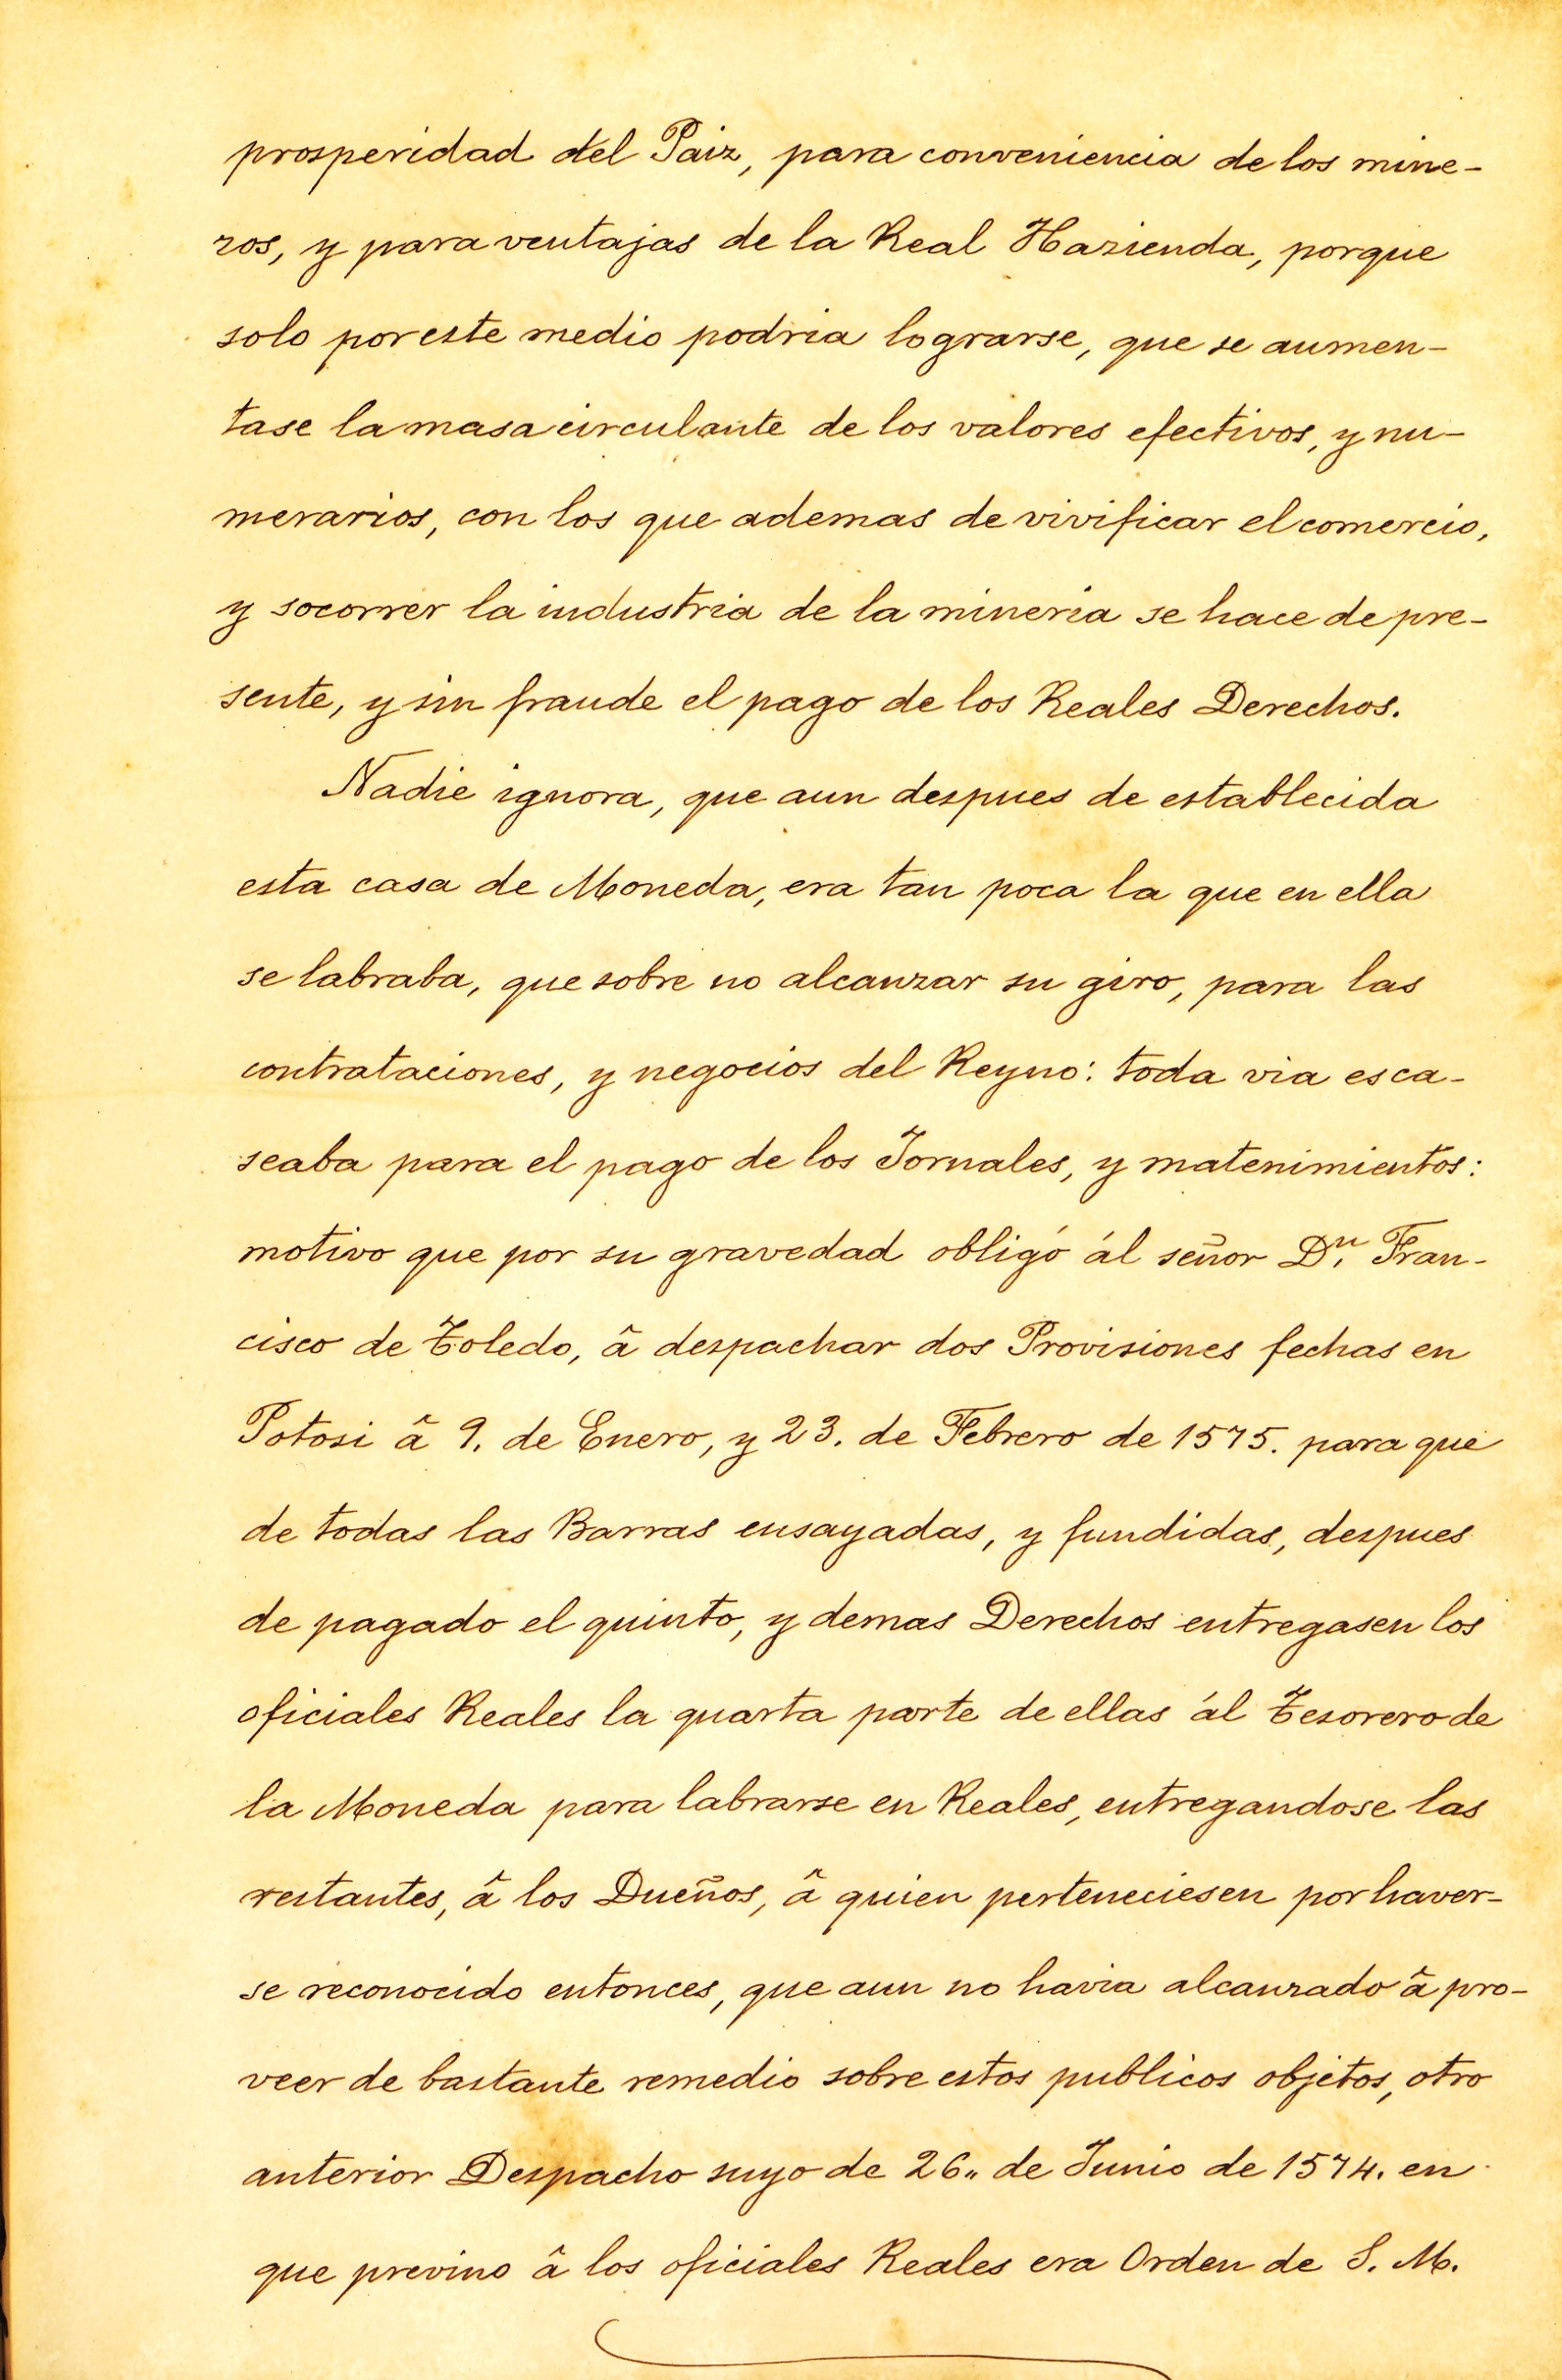 prosperidad del Paiz, para conveniencia de los mine-
ros, y para ventajas de la Real Hazienda, porque
solo por este medio podria lograrse, que se aumen-
tase la masa circulante de los valores efectivos, y nu-
merarios, con los que ademas de vivificar el comercio,
y socorrer la industria de la mineria se hace de pre-
sente, y sin fraude el pago de los Reales Derechos.
Nadie ignora, que aun despues de establecida
esta casa de Moneda, era tan poca la que en ella
se labraba, que sobre no alcanzar su giro, para las
contrataciones, y negocios del Reyno: toda via esca-
seaba para el pago de los Jornales, y matenimientos:
motivo que por su gravedad obligó ál señor Dn. Fran-
cisco de Toledo, â despachar dos Provisiones fechas en
Potosi â 9. de Enero, y 23. de Febrero de 1575. para que
de todas las Barras ensayadas, y fundidas, despues
de pagado el quinto, y demas Derechos entregasen los
oficiales Reales la quarta parte de ellas ál Tesorero de
la Moneda para labrarse en Reales, entregandose las
restantes, â los Dueños, â quien perteneciesen por haver-
se reconocido entonces, que aun no havia alcanzado â pro-
veer de bastante remedio sobre estos publicos objetos, otro
anterior Despacho suyo de 26,, de Junio de 1574. en
que previno â los oficiales Reales era Orden de S. M.